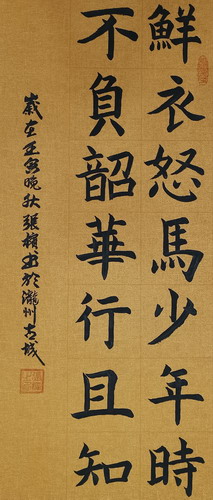 鮮衣怒馬少年時
不負韶華行且知
歲在正無晚秋張楨書於瀧州古城